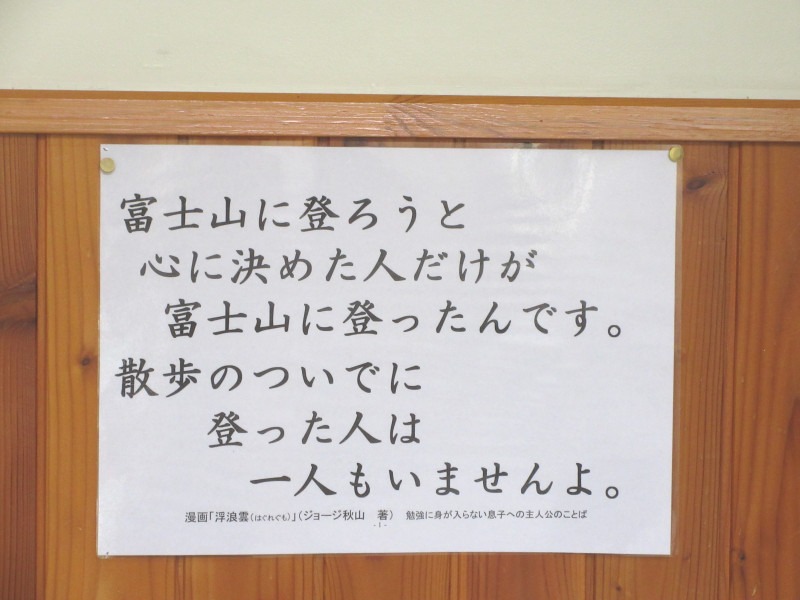 富士山に登ろうと
心に決めた人だけが
富士山に登ったんです。
散歩のついでに
登った人は
一人もいませんよ。
漫画「浮浪雲(はぐれぐも)」(ジョージ秋山　著)　勉強に身が入らない息子への主人公のことば
- 1 -